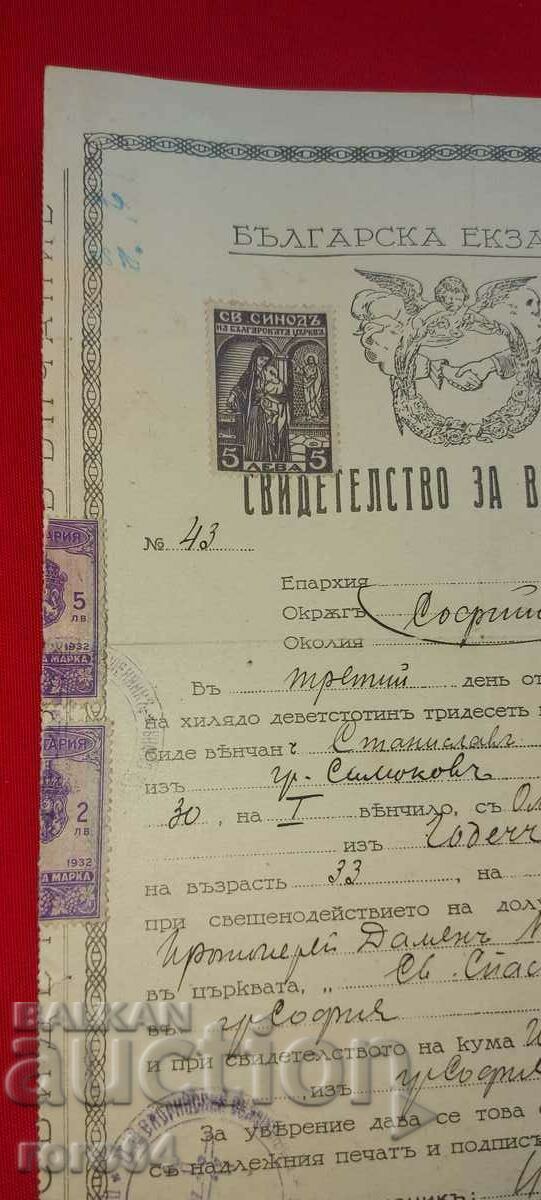 БЪЛГАРСКА ЕКЗА
СВ. СИНОДЪ
НА БЪЛГАРСКАТА ЦЪРКВА
5 ЛЕВА 5
СВИДЕТЕЛСТВО ЗА В
№ 43
Епархия
Окрѫгъ Софий
Околия
Въ третий день от
на хилядо деветстотинъ тридесеть
биде вѣнчанъ Станиславъ
изъ гр. Самоковъ
30, на I вѣнчило, съ
изъ Годечъ
на възрасть 33, на
при свещенодействието на долу
Протоиерей Дамянъ
въ църквата, „ Св. Спас
въ гр София
и при свидетелството на кума
, изъ гр София
За увѣрение дава се това
съ надлежния печатъ и подписъ
АРИЯ
5
ЛВ.
1932
А МАРКА
АРИЯ
2
ЛВ
1932
А МАРКА
BALKAN
auction
rory94